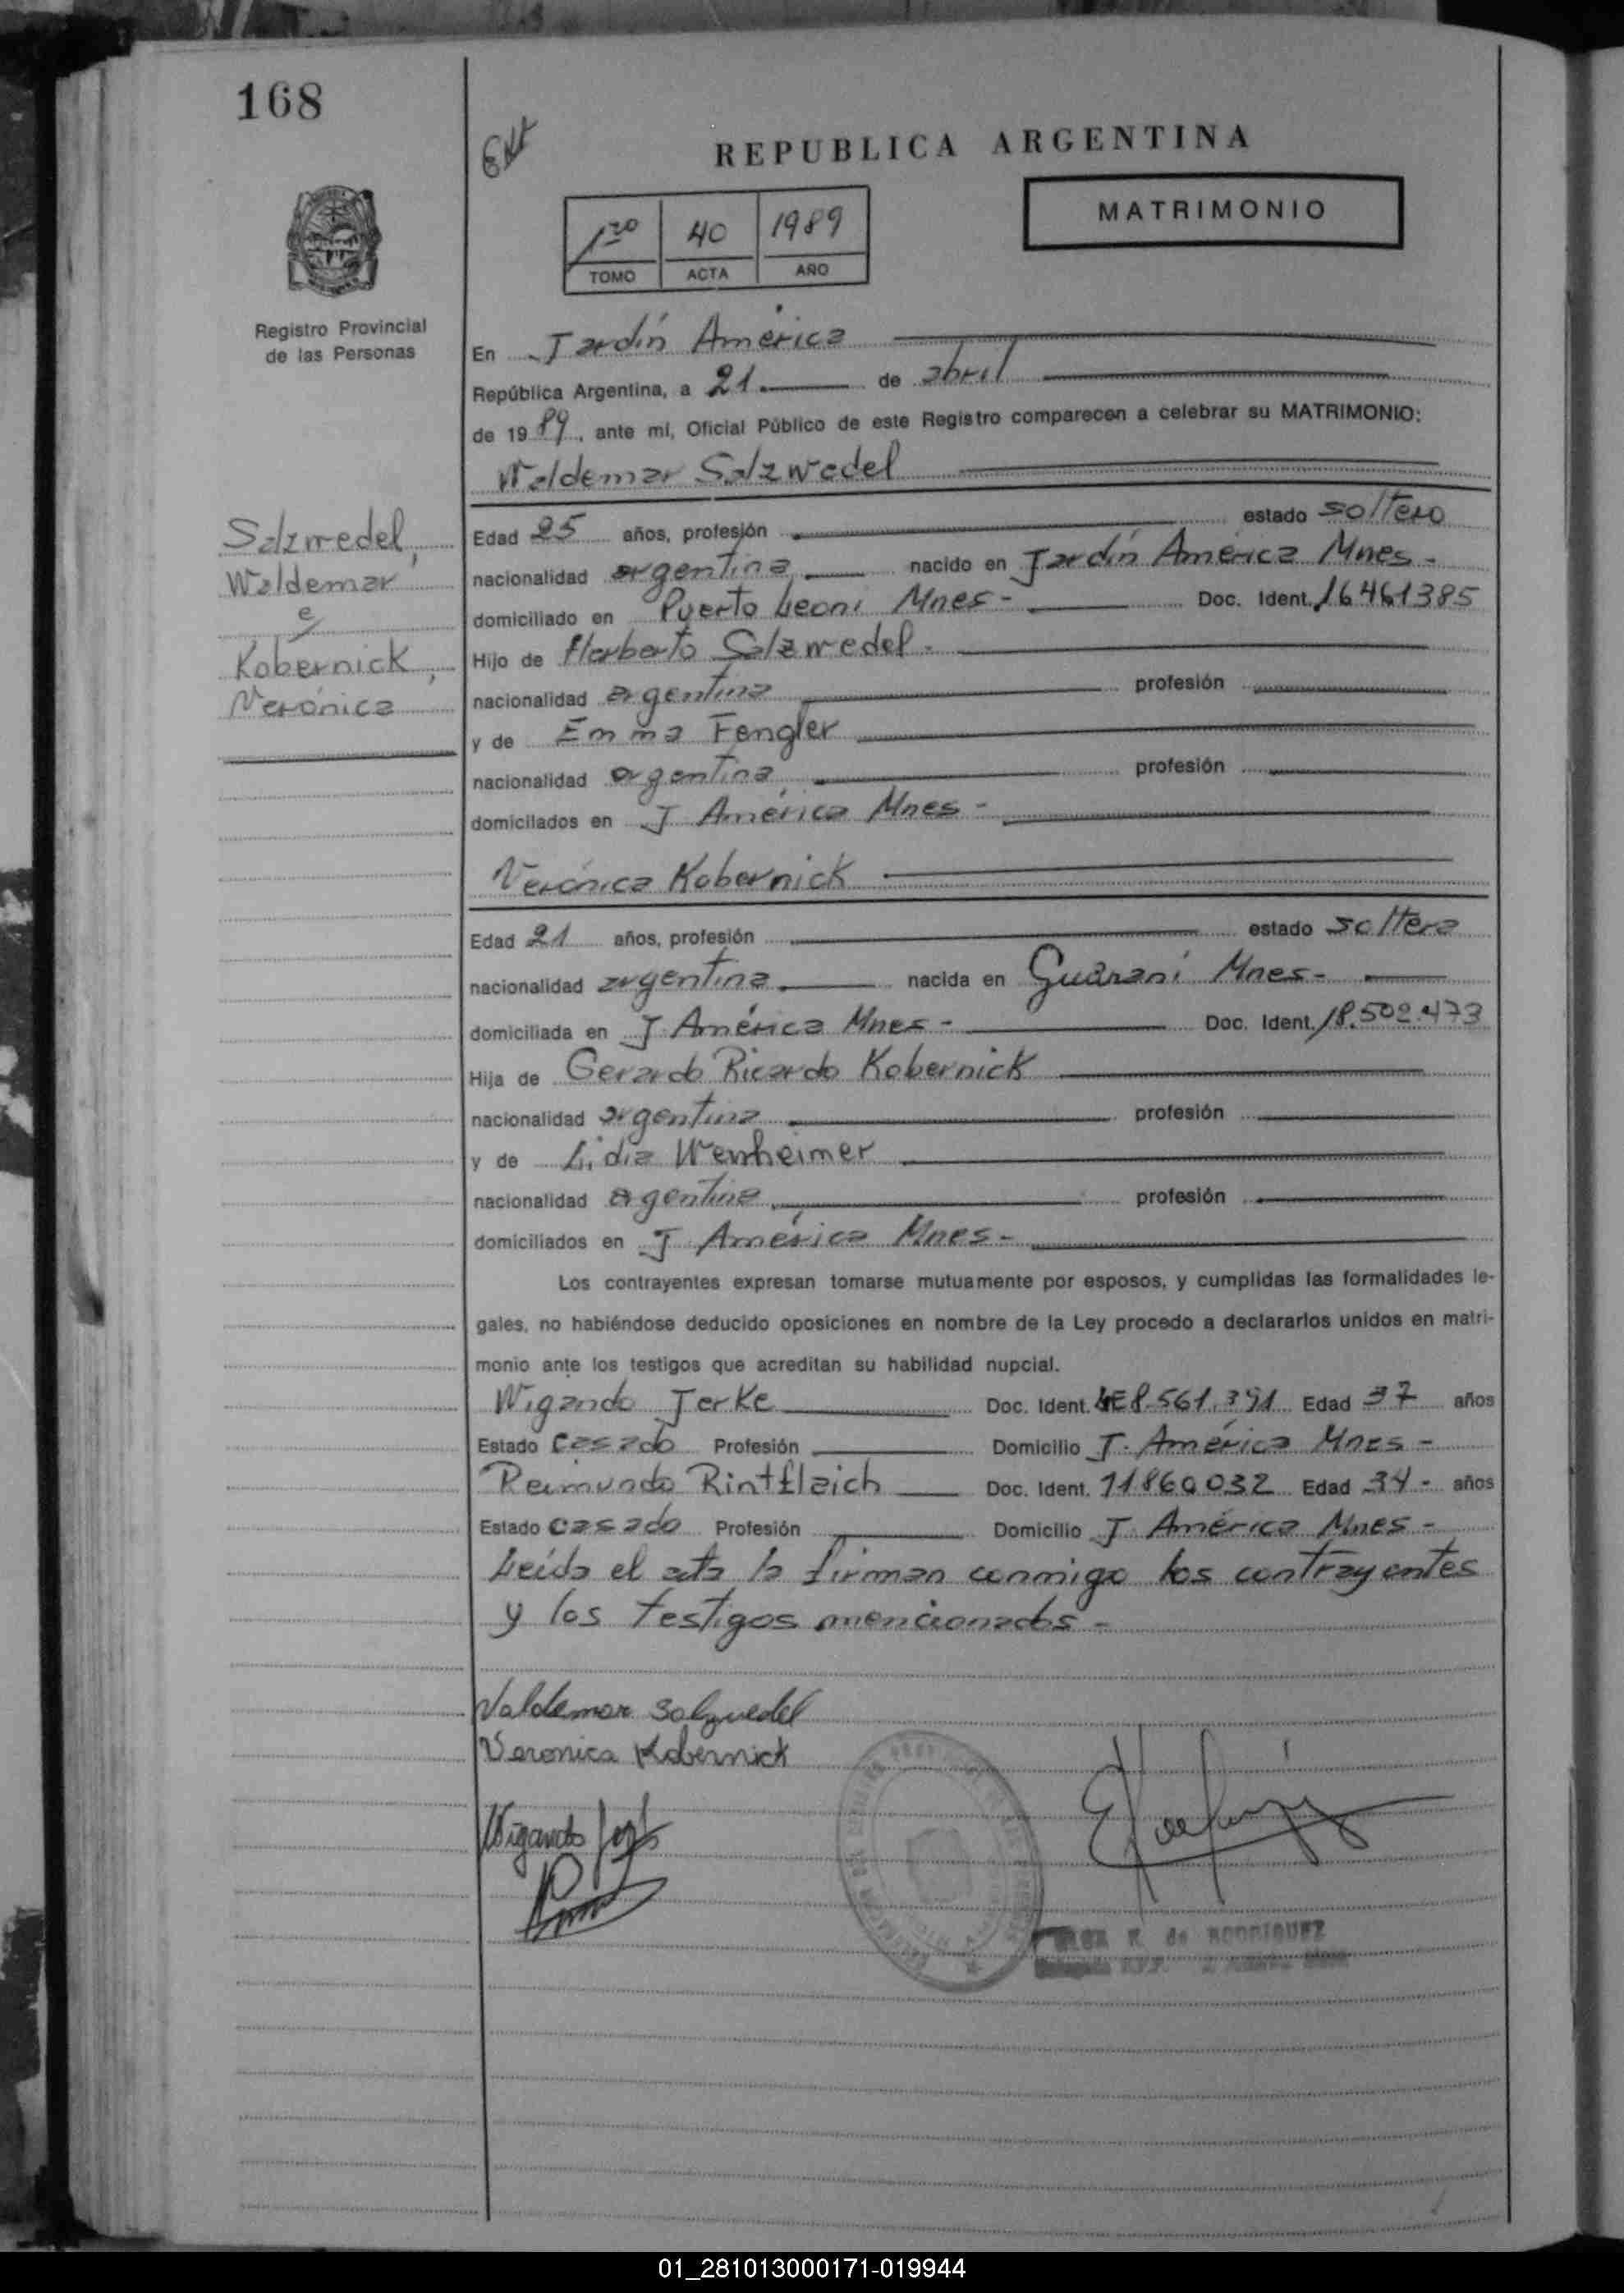 168
REPUBLICA ARGENTINA
MATRIMONIO
1ro 40 1989
TOMO ACTA AÑO
Registro Provincial
de las Personas
En Jardín América
República Argentina, a 21 de abril
de 1989, ante mí, Oficial Público de este Registro comparecen a celebrar su MATRIMONIO:
Waldemar Salzwedel
Salzwedel,
Waldemar
e/
Kobernick,
Verónica
Edad 25 años, profesión estado soltero
nacionalidad argentina nacido en Jardín América Mnes-
domiciliado en Puerto Leoni Mnes- Doc. Ident. 16461385
Hijo de Herberto Salzwedel.
nacionalidad argentina profesión
y de Emma Fengler
nacionalidad argentina profesión
domicilados en J América Mnes-
Verónica Kobernick
Edad 21 años, profesión estado soltera
nacionalidad argentina nacida en Guaraní Mnes-
domiciliada en J América Mnes- Doc. Ident. 18.502.473
Hija de Gerardo Ricardo Kobernick
nacionalidad argentina profesión
y de Lidia
nacionalidad argentina profesión
domiciliados en J América Mnes-
Los contrayentes expresan tomarse mutuamente por esposos, y cumplidas las formalidades le-
gales, no habiéndose deducido oposiciones en nombre de la Ley procedo a declararlos unidos en matri-
monio ante los testigos que acreditan su habilidad nupcial.
Wigando Jerke Doc. Ident. LE 8.561.391 Edad 37 años
Estado casado Profesión Domicilio J. América Mnes-
Reimundo Rintfleich Doc. Ident. 11860032 Edad 34- años
Estado casado Profesión Domicilio J América Mnes-
Leída el acta la firman conmigo los contrayentes
y los testigos mencionados-
Valdemar Salzwedel
Veronica Kobernick
Wigando
de RODRIGUEZ
01_281013000171-019944